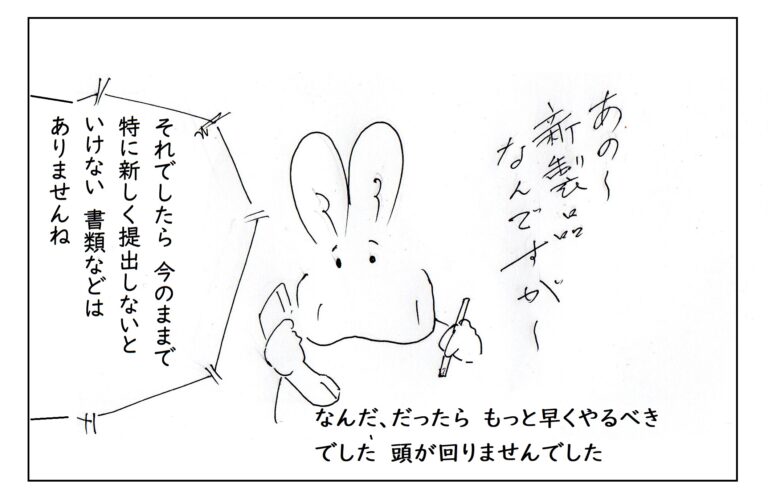 あの〜
新製品
なんですが〜
それでしたら 今のままで
特に新しく提出しないと
いけない 書類などは
ありませんね
なんだ、だったら もっと早くやるべき
でした、頭が回りませんでした